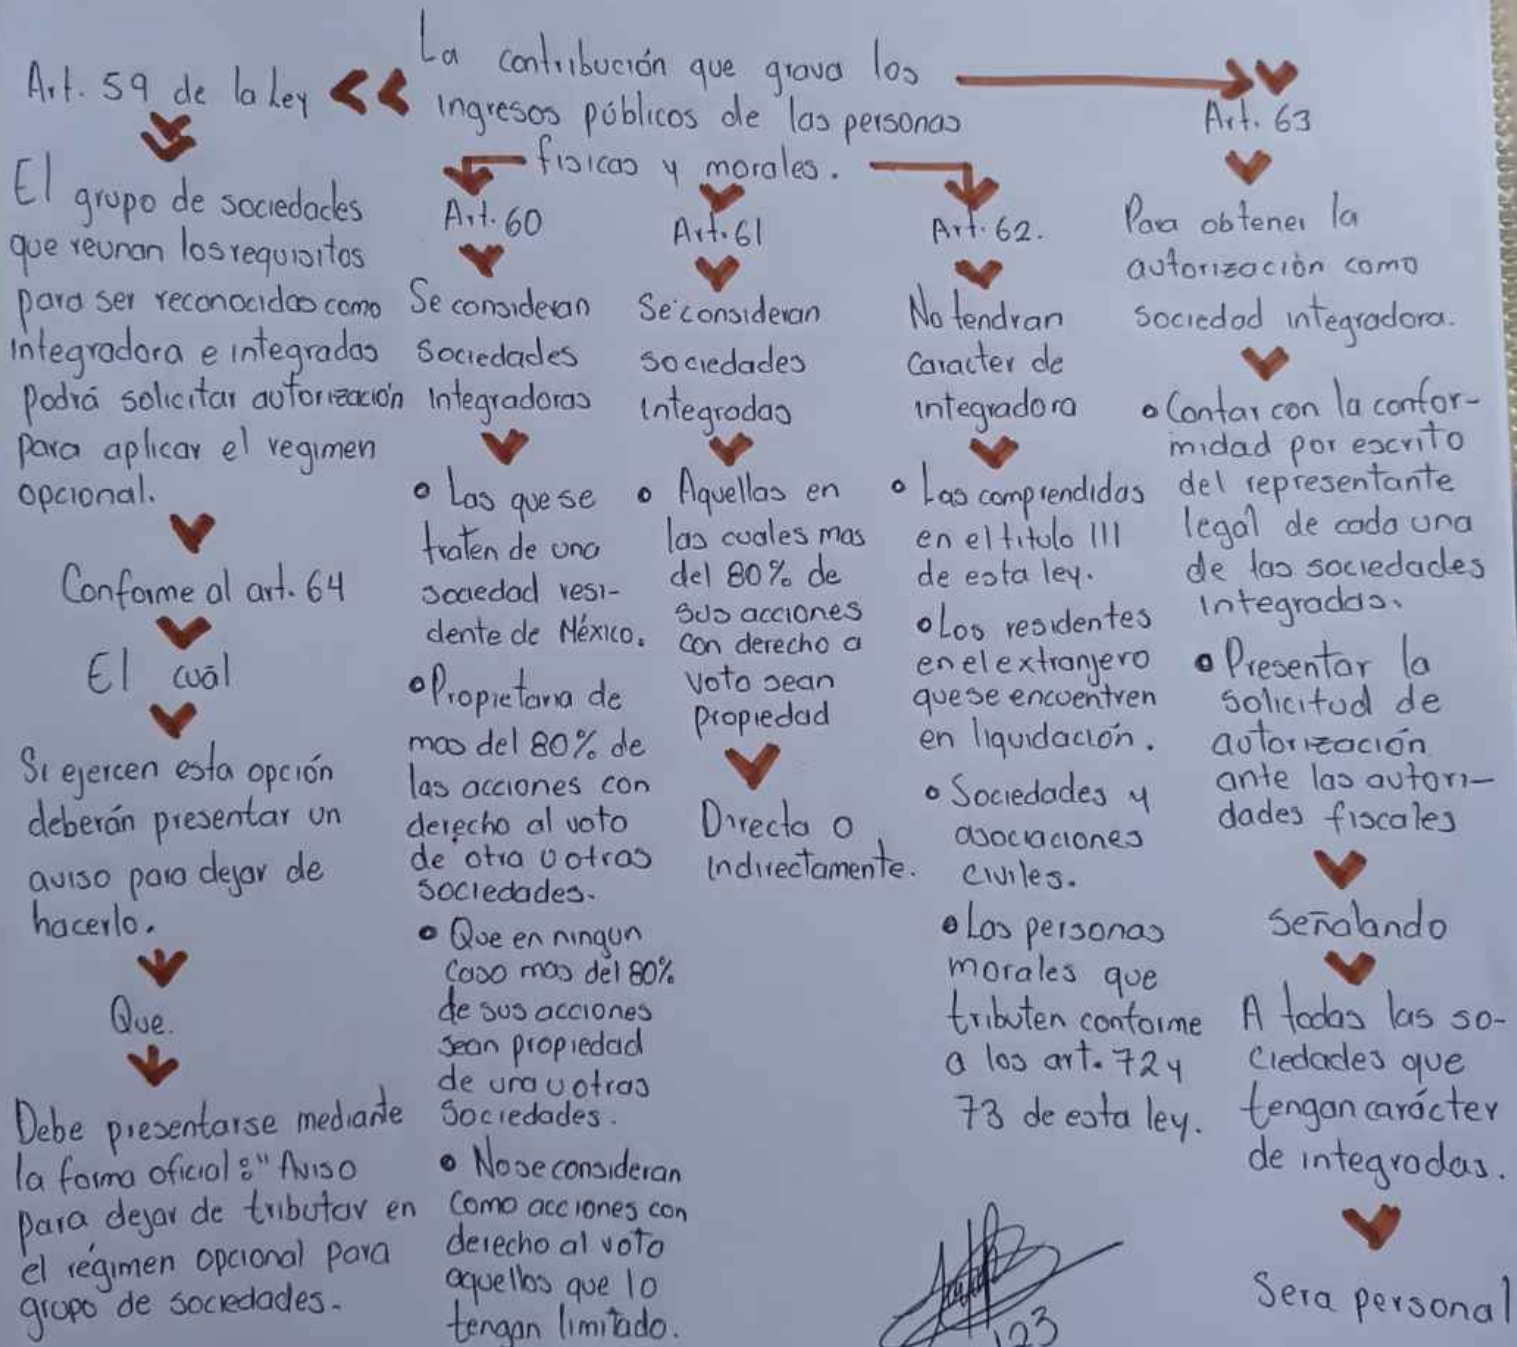 La contribución que grava los
ingresos públicos de las personas
fisicas y morales.
Art. 59 de la Ley
El grupo de sociedades
que reunan los requisitos
para ser reconocidas como
integradora e integradas
podrá solicitar autorización
para aplicar el regimen
opcional.
Conforme al art. 64
El cuál
Si ejercen esta opción
deberán presentar un
aviso para dejar de
hacerlo.
Que.
Debe presentarse mediante
la forma oficial: "Aviso
para dejar de tributar en
el régimen opcional para
grupo de sociedades.
Art. 60
Se consideran
Sociedades
Integradoras
Las que se
traten de una
sociedad resi-
dente de México.
Propietaria de
mas del 80% de
las acciones con
derecho al voto
de otra u otras
sociedades.
Que en ningun
caso mas del 80%
de sus acciones
sean propiedad
de una u otras
Sociedades.
No se consideran
como acciones con
derecho al voto
aquellos que lo
tengan limitado.
Art. 61
Se consideran
sociedades
integradas
Aquellas en
las cuales mas
del 80% de
sus acciones
con derecho a
voto sean
propiedad
Directa o
indirectamente.
Art. 62.
No tendran
Caracter de
integradora
Las comprendidas
en el titulo III
de esta ley.
Los residentes
en el extranjero
que se encuentren
en liquidación.
Sociedades y
asociaciones
civiles.
Las personas
morales que
tributen conforme
a los art. 72 y
73 de esta ley.
Art. 63
Para obtener la
autorización como
sociedad integradora.
Contar con la confor-
midad por escrito
del representante
legal de cada una
de las sociedades
integradas.
Presentar la
solicitud de
autorización
ante las autori-
dades fiscales
señalando
A todas las so-
ciedades que
tengan carácter
de integradas.
Sera personal